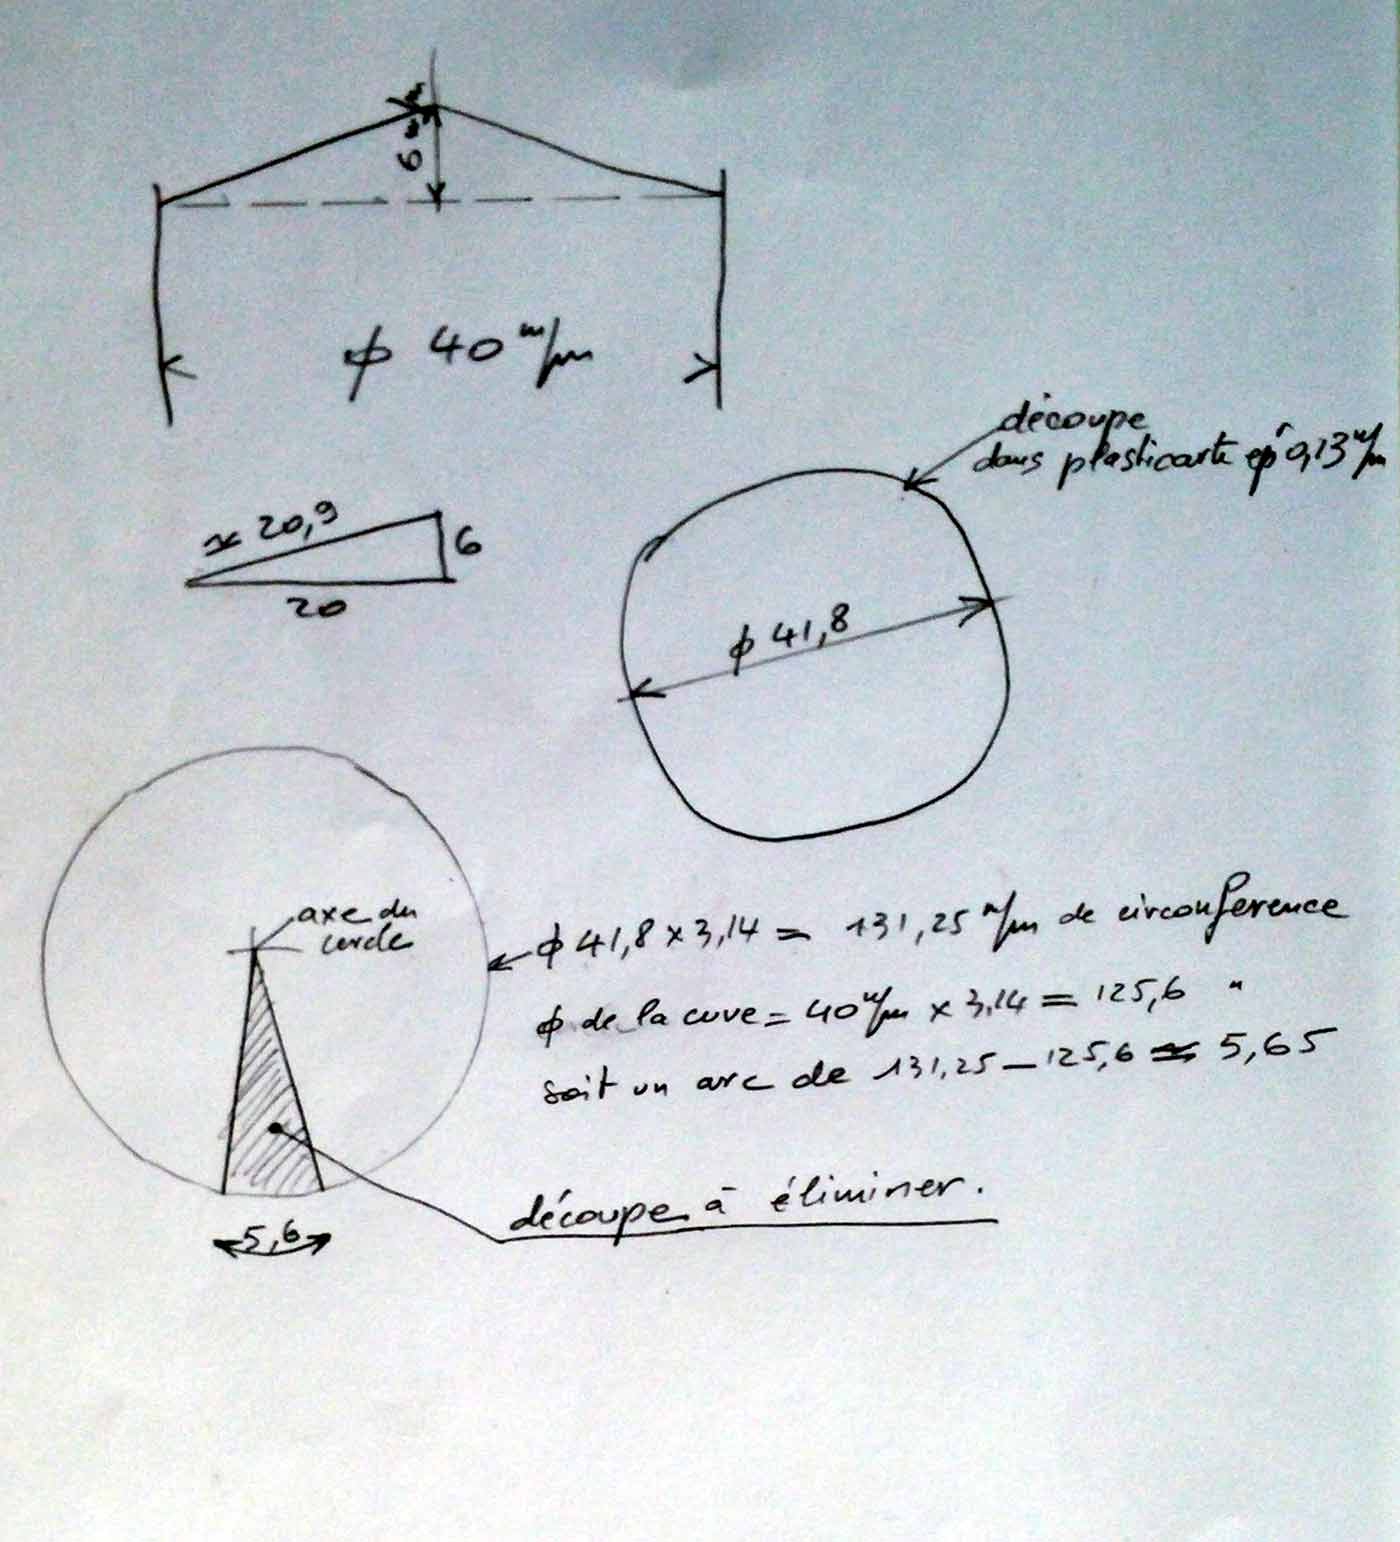 6 m/m
ϕ 40 m/m
découpe
dans plasticarte ép^r 0,13 m/m
≈ 20,9
6
20
ϕ 41,8
axe du
cercle
ϕ 41,8 x 3,14 = 131,25 m/m de circonference
ϕ de la cuve = 40 m/m x 3,14 = 125,6 "
soit un arc de 131,25 - 125,6 ≈ 5,65
découpe à éliminer.
5,6